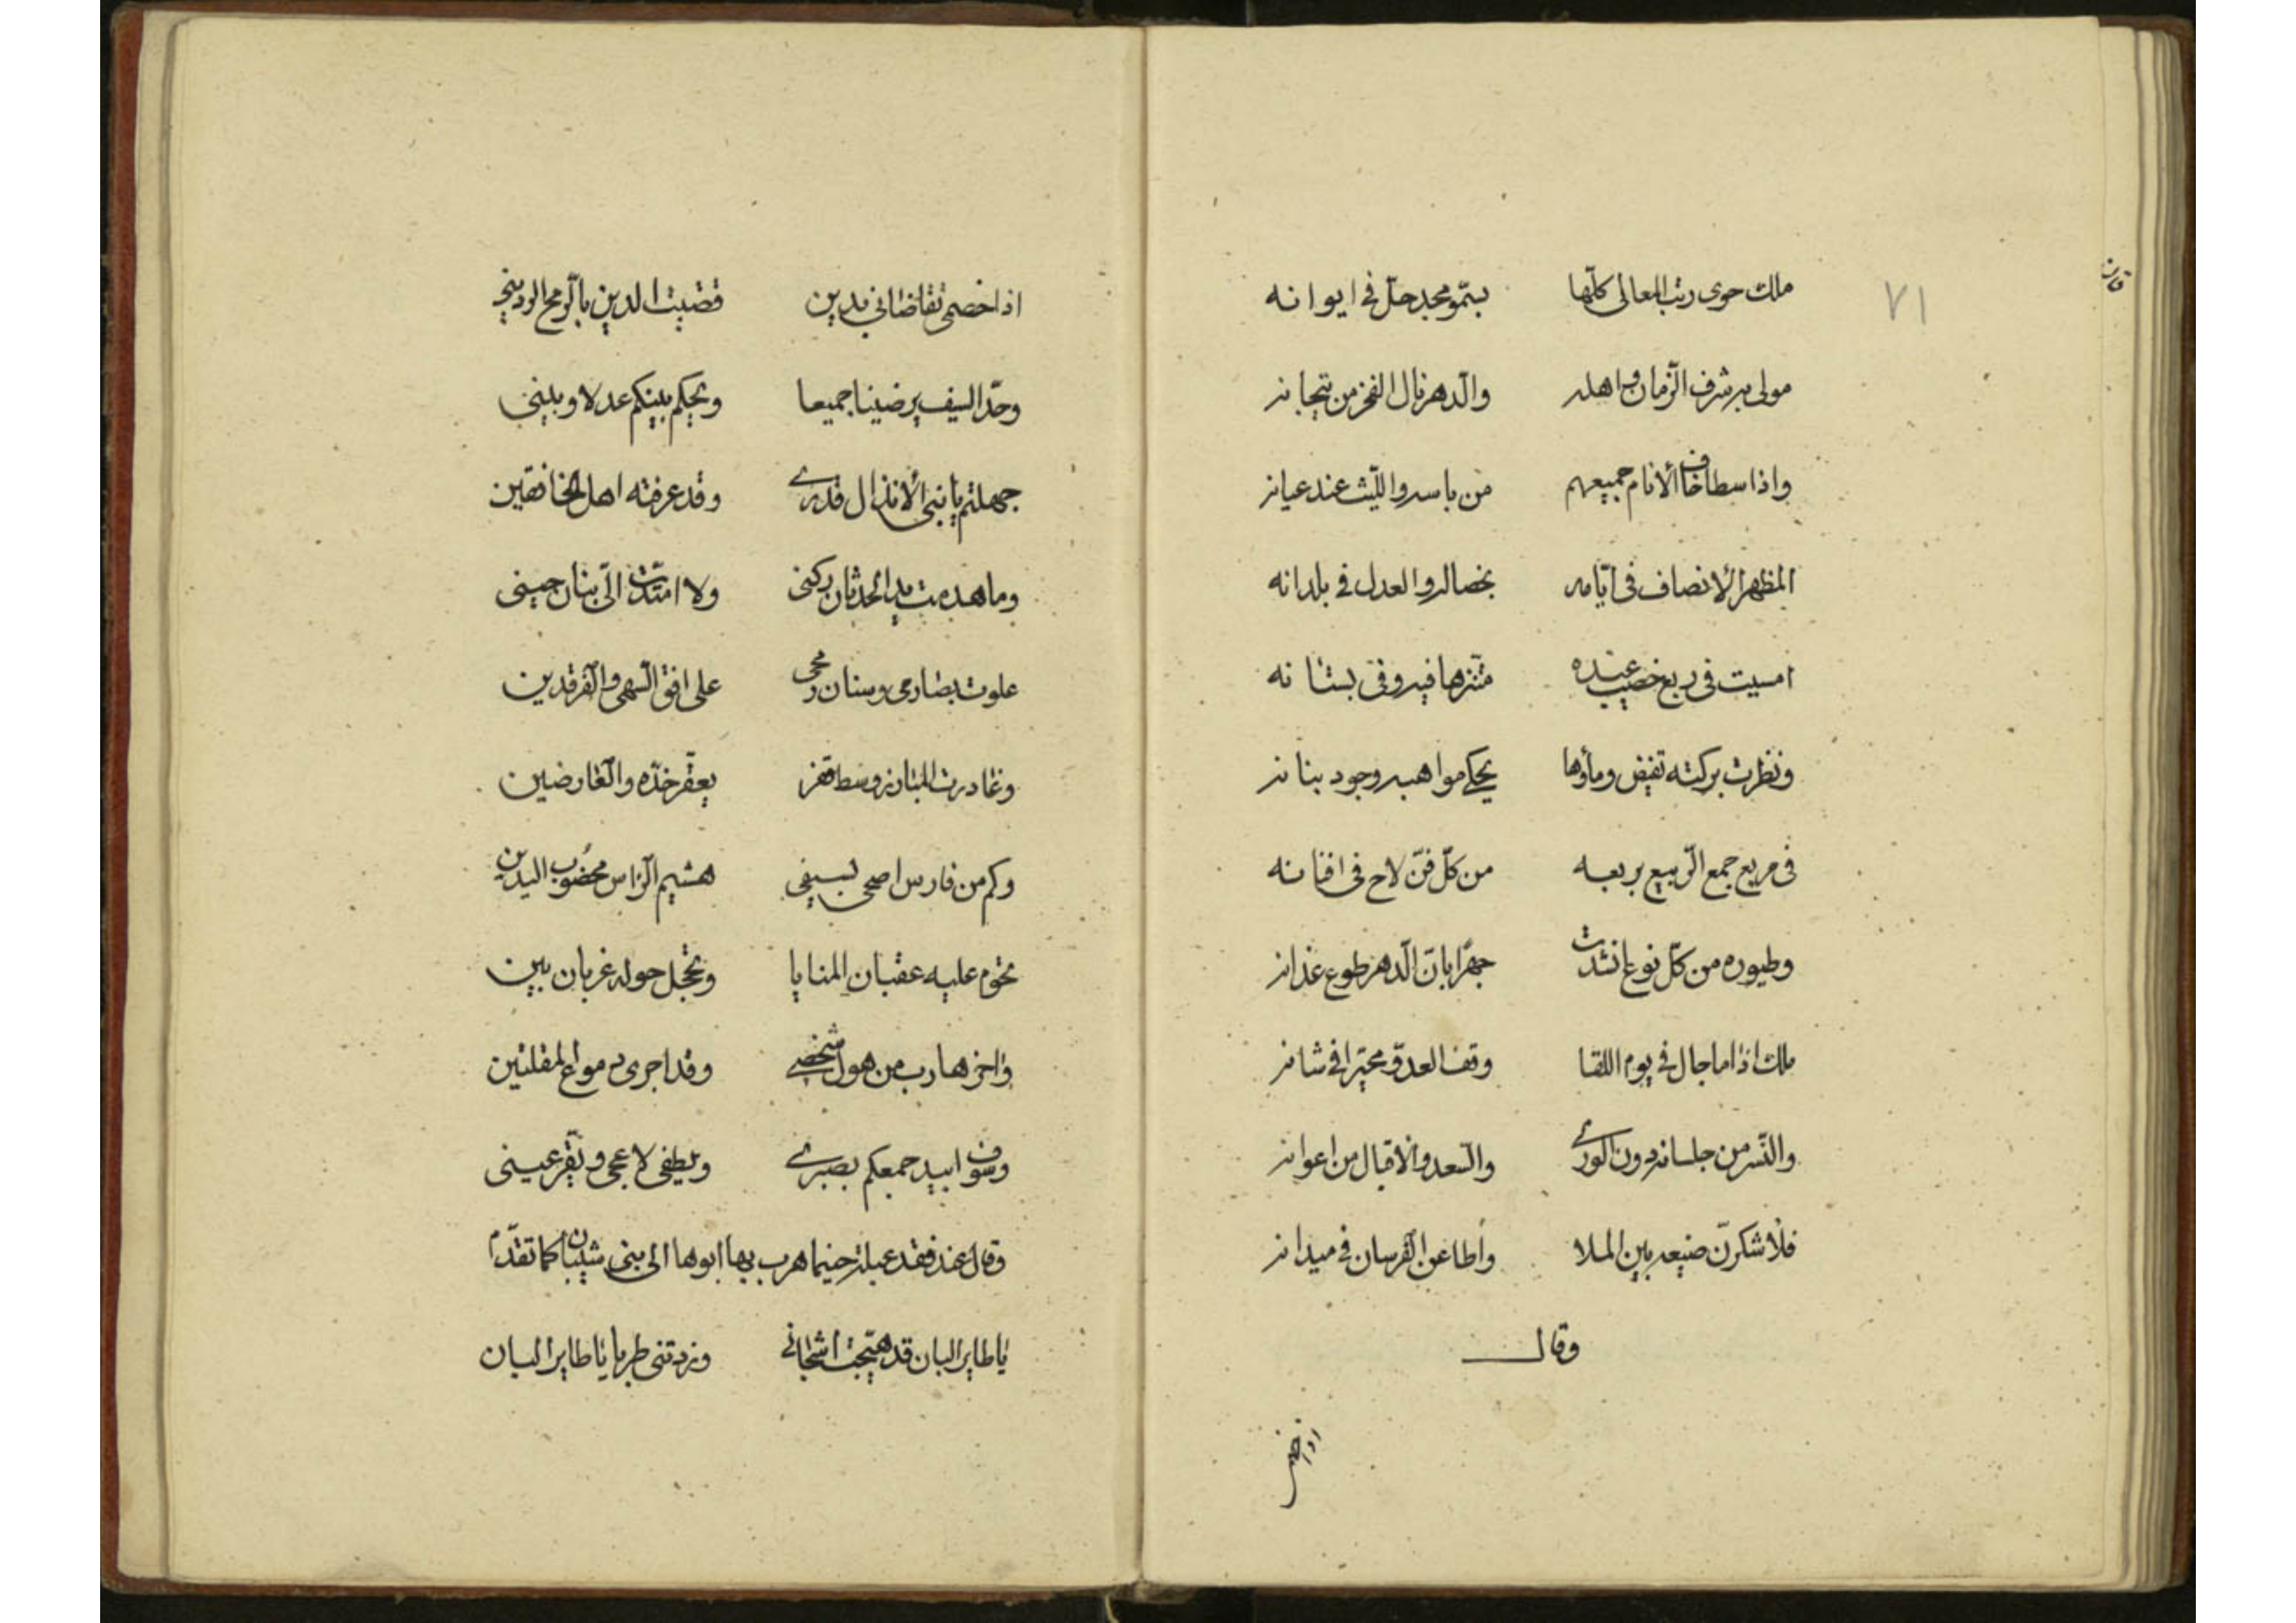 ٧١
ملك حوى رتب المعالى كلّها بسموّ مجد حلّ فى ايوانه
مولى به شرف الزّمان واهله والدّهر نال الفخر من تيجانه
واذا سطا خاف الأنام جميعهم من باسه واللّيث عند عيانه
المظهر الانصاف فى ايّامه بخصاله والعدل فى بلدانه
امسيت فى ربع خصيب عنده متنزّها فيه وفى بستانه
ونظرت بركته تفيض وماؤها يحكى مواهبه وجود بنانه
فى مربع جمع الرّبيع بربعه من كلّ فنّ لاح فى افنانه
وطيوره من كلّ نوع انشدت جهرًا بانّ الدّهر طوع عنانه
ملك اذا ما جال فى يوم اللقا وقف العدوّ محيّرا فى شانه
والنّسر من جلسانه دون الورى والسّعد والاقبال من اعوانه
فلأشكرنّ صنيعه بين الملا وأطاعن الفرسان فى ميدانه
وقال
اذا خصمى
اذا خصمى تقاضانى بدين قضيت الدين بالرّمح الردينى
وحدّ السيف يرضينا جميعا ويحكم بينكم عدلا وبينى
جهلتم يا بنى الأنذال قدرى وقد عرفته اهل الخافقين
وما هدمت يد الحدثان ركنى ولا امتدّت الىّ بنان حينى
علوت بصارمى وسنان رمحى على افق السّهى والفرقدين
وغادرت المبارز وسط قفر يعفّر خدّه والعارضين
وكم من فارس اضحى بسيفى هشيم الرّاس مخضوب اليدين
تحوم عليه عقبان المنايا وتحجل حوله غربان بين
وآخر هارب من هول شخصى وقد اجرى دموع المقلتين
وسوف ابيد جمعكم بصبرى ويطفى لاعجى وتقرّ عينى
وقال عند فقد عبلة حينما هرب بها ابوها الى بنى شيبان كما تقدّم
يا طاير البان قد هيّجت اشجانى وزدتنى طربا يا طاير البان